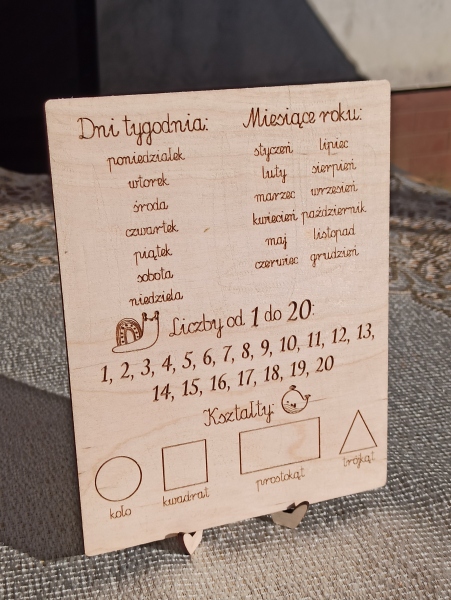 Dni tygodnia:
poniedziałek
wtorek
środa
czwartek
piątek
sobota
niedziela
Miesiące roku:
styczeń lipiec
luty sierpień
marzec wrzesień
kwiecień październik
maj listopad
czerwiec grudzień
Liczby od 1 do 20:
1, 2, 3, 4, 5, 6, 7, 8, 9, 10, 11, 12, 13,
14, 15, 16, 17, 18, 19, 20
Kształty:
koło kwadrat prostokąt trójkąt